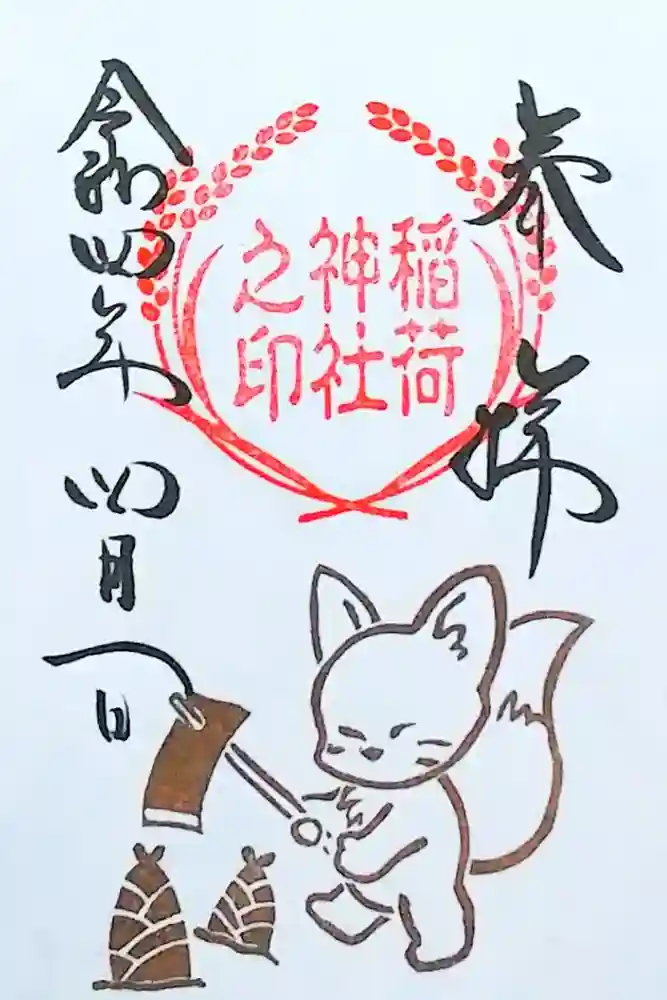 奉拝
稲荷
神社
之印
令和四年 四月一日